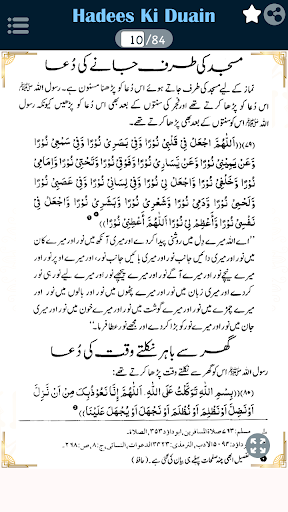 Hadees Ki Duain
10/84
مسجد کی طرف جانے کی دُعا
نماز کے لیے مسجد کی طرف جاتے ہوئے اس دُعا کو پڑھنا مسنون ہے۔ رسول اللہ ﷺ
اس دُعا کو پڑھا کرتے تھے اور فجر کی سنتوں کے بعد بھی اس دُعا کو پڑھیں کیونکہ رسول
اللہ ﷺ اس کو سنتوں کے بعد بھی پڑھا کرتے تھے۔
(٧٩) ((اَللّٰهُمَّ اجْعَلْ فِي قَلْبِيْ نُوْرًا وَفِي بَصَرِيْ نُوْرًا وَفِي سَمْعِيْ نُوْرًا
وَعَنْ يَمِيْنِيْ نُوْرًا وَعَنْ يَسَارِيْ نُوْرًا وَفَوْقِيْ نُوْرًا وَتَحْتِيْ نُوْرًا وَاَمَامِيْ
نُوْرًا وَخَلْفِيْ نُوْرًا وَاجْعَلْ لِيْ نُوْرًا وَفِيْ لِسَانِيْ نُوْرًا وَفِيْ عَصَبِيْ نُوْرًا
وَلَحْمِيْ نُوْرًا وَدَمِيْ نُوْرًا وَشَعْرِيْ نُوْرًا وَبَشَرِيْ نُوْرًا وَاجْعَلْ فِيْ
نَفْسِيْ نُوْرًا وَاَعْظِمْ لِيْ نُوْرًا اَللّٰهُمَّ اَعْطِنِيْ نُوْرًا))
"اے اللہ میرے دل میں روشنی پیدا کر دے اور میری آنکھ میں نور اور میرے کان
میں نور اور میری دائیں جانب نور اور میری بائیں جانب نور، اور میرے اوپر نور اور
میرے نیچے نور اور میرے آگے نور اور میرے پیچھے نور اور میرے لیے نور ہی نور
کر دے اور میری زبان میں نور اور میرے پٹھوں میں نور اور میرے بالوں میں نور اور
میرے چمڑے میں نور اور میرے گوشت میں نور اور میرے خون میں نور اور میری
جان میں نور اور میرے نور کو بڑا کر دے اور مجھے نور عطا فرما۔"
گھر سے باہر نکلتے وقت کی دُعا
رسول اللہ ﷺ گھر سے نکلتے وقت پڑھا کرتے تھے۔
(٨٠) ((بِسْمِ اللهِ تَوَكَّلْتُ عَلَى اللهِ. اَللّٰهُمَّ اِنَّا نَعُوْذُبِكَ مِنْ اَنْ نَزِلَّ
اَوْ نَضِلَّ اَوْ نَظْلِمَ اَوْ نُظْلَمَ اَوْ نَجْهَلَ اَوْ يُجْهَلَ عَلَيْنَا))
مسلم: ٧٦٣ صلاۃ المسافرین، ابوداؤد: ١٣٥٣، الصلاۃ۔
داؤد: ٥٠٩٣ الادب، الترمذی: ٣٤٢٣ الدعوات، النسائی، ج: ٨، ص: ٢٦٨۔